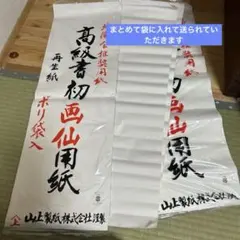 まとめて袋に入れて送られてい
ただきます
高級書初画仙用紙
再生紙
ポリ袋入
山上製紙株式会社謹製
画仙用紙
山上製紙株式会社謹製